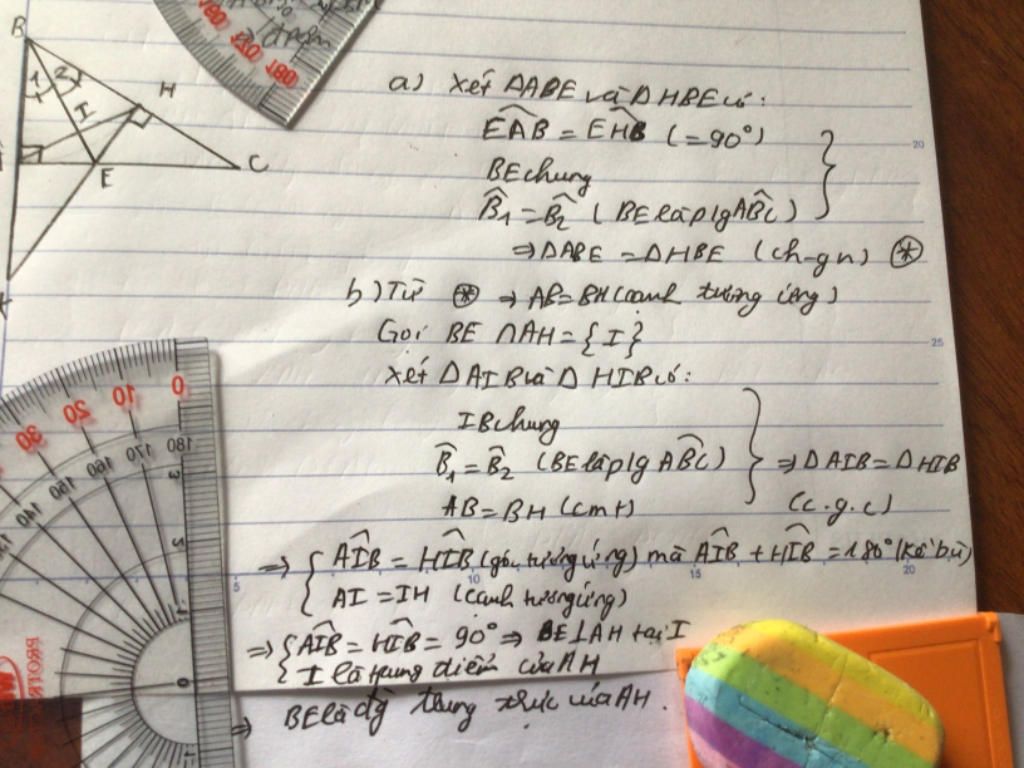 B
1 2
H
I
E
C
a) Xét ΔABE và ΔHBE có:
EAB̂ = EHB̂ (=90°)
BE chung
B̂₁ = B̂₂ (BE là p/g ABĈ)
⇒ ΔABE = ΔHBE (ch-gn) ⊛
b) Từ ⊛ ⇒ AB = BH (cạnh tương ứng)
Gọi BE ∩ AH = {I}
Xét ΔAIB và ΔHIB có:
IB chung
B̂₁ = B̂₂ (BE là p/g ABĈ)
⇒ ΔAIB = ΔHIB
AB = BH (cmt)
(c.g.c)
⇒ { AIB̂ = HIB̂ (góc tương ứng) mà AIB̂ + HIB̂ = 180° (kề bù)
AI = IH (cạnh tương ứng)
⇒ { AIB̂ = HIB̂ = 90° ⇒ BE ⊥ AH tại I
I là trung điểm của AH
⇒ BE là đg trung trực của AH.
180 170 160 150 140
0 10 20 30
20
25
5 10 15 20